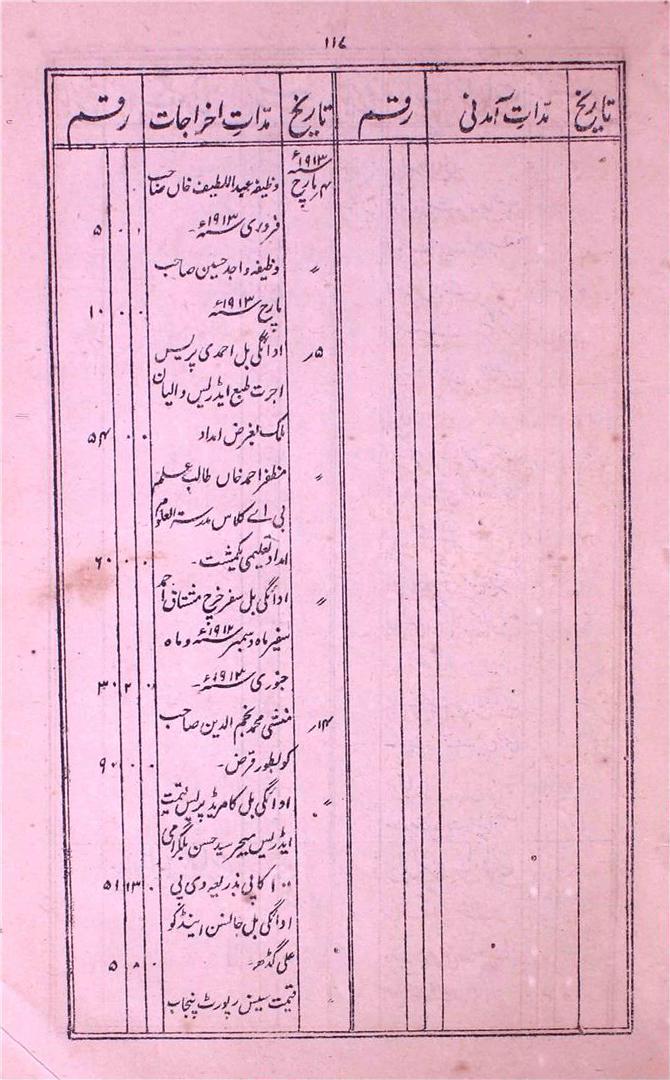 ۱۱۷
تاریخ مدّاتِ آمدنی رقم تاریخ مدّاتِ اخراجات رقم
۱۹۱۳ء
۴ مارچ وظیفہ عبداللطیف خاں صاحب
فروری ۱۹۱۳ء۔ ۰ ۰ ۵
〃 وظیفہ واجد حسین صاحب
مارچ ۱۹۱۳ء ۰ ۰ ۱۰
۵ر ادائگی بل احمدی پریس
اجرت طبع ایڈریس والیان
ملک بغرض امداد ۰ ۰ ۵۴
〃 مظفر احمد خاں طالب علم
بی اے کلاس مدرستہ العلوم
امداد تعلیمی یکمشت۔ ۰ ۰ ۶۰
〃 ادائگی بل سفر خرچ مشتاق احمد
سفیر ماہ دسمبر ۱۹۱۲ء و ماہ
جنوری ۱۹۱۳ء۔ ۰ ۲ ۳۰
۱۴ر منشی محمد نجم الدین صاحب
کو بطور قرض۔ ۰ ۰ ۹۰
〃 ادائگی بل کامریڈ پریس قیمت
ایڈریس میجر سید حسن بلگرامی
۱۰۰ کاپی بذریعہ وی پی ۰ ۱۳ ۵۱
ادائگی بل جانسن اینڈ کو
علی گڈھ۔ ۰ ۸ ۵
قیمت سینسس رپورٹ پنجاب